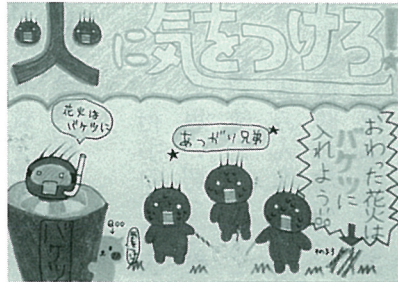 火に気をつけろ!
花火は
バケツに
あつがり兄弟
おわった花火は
バケツに
入れよう!!
バケツ